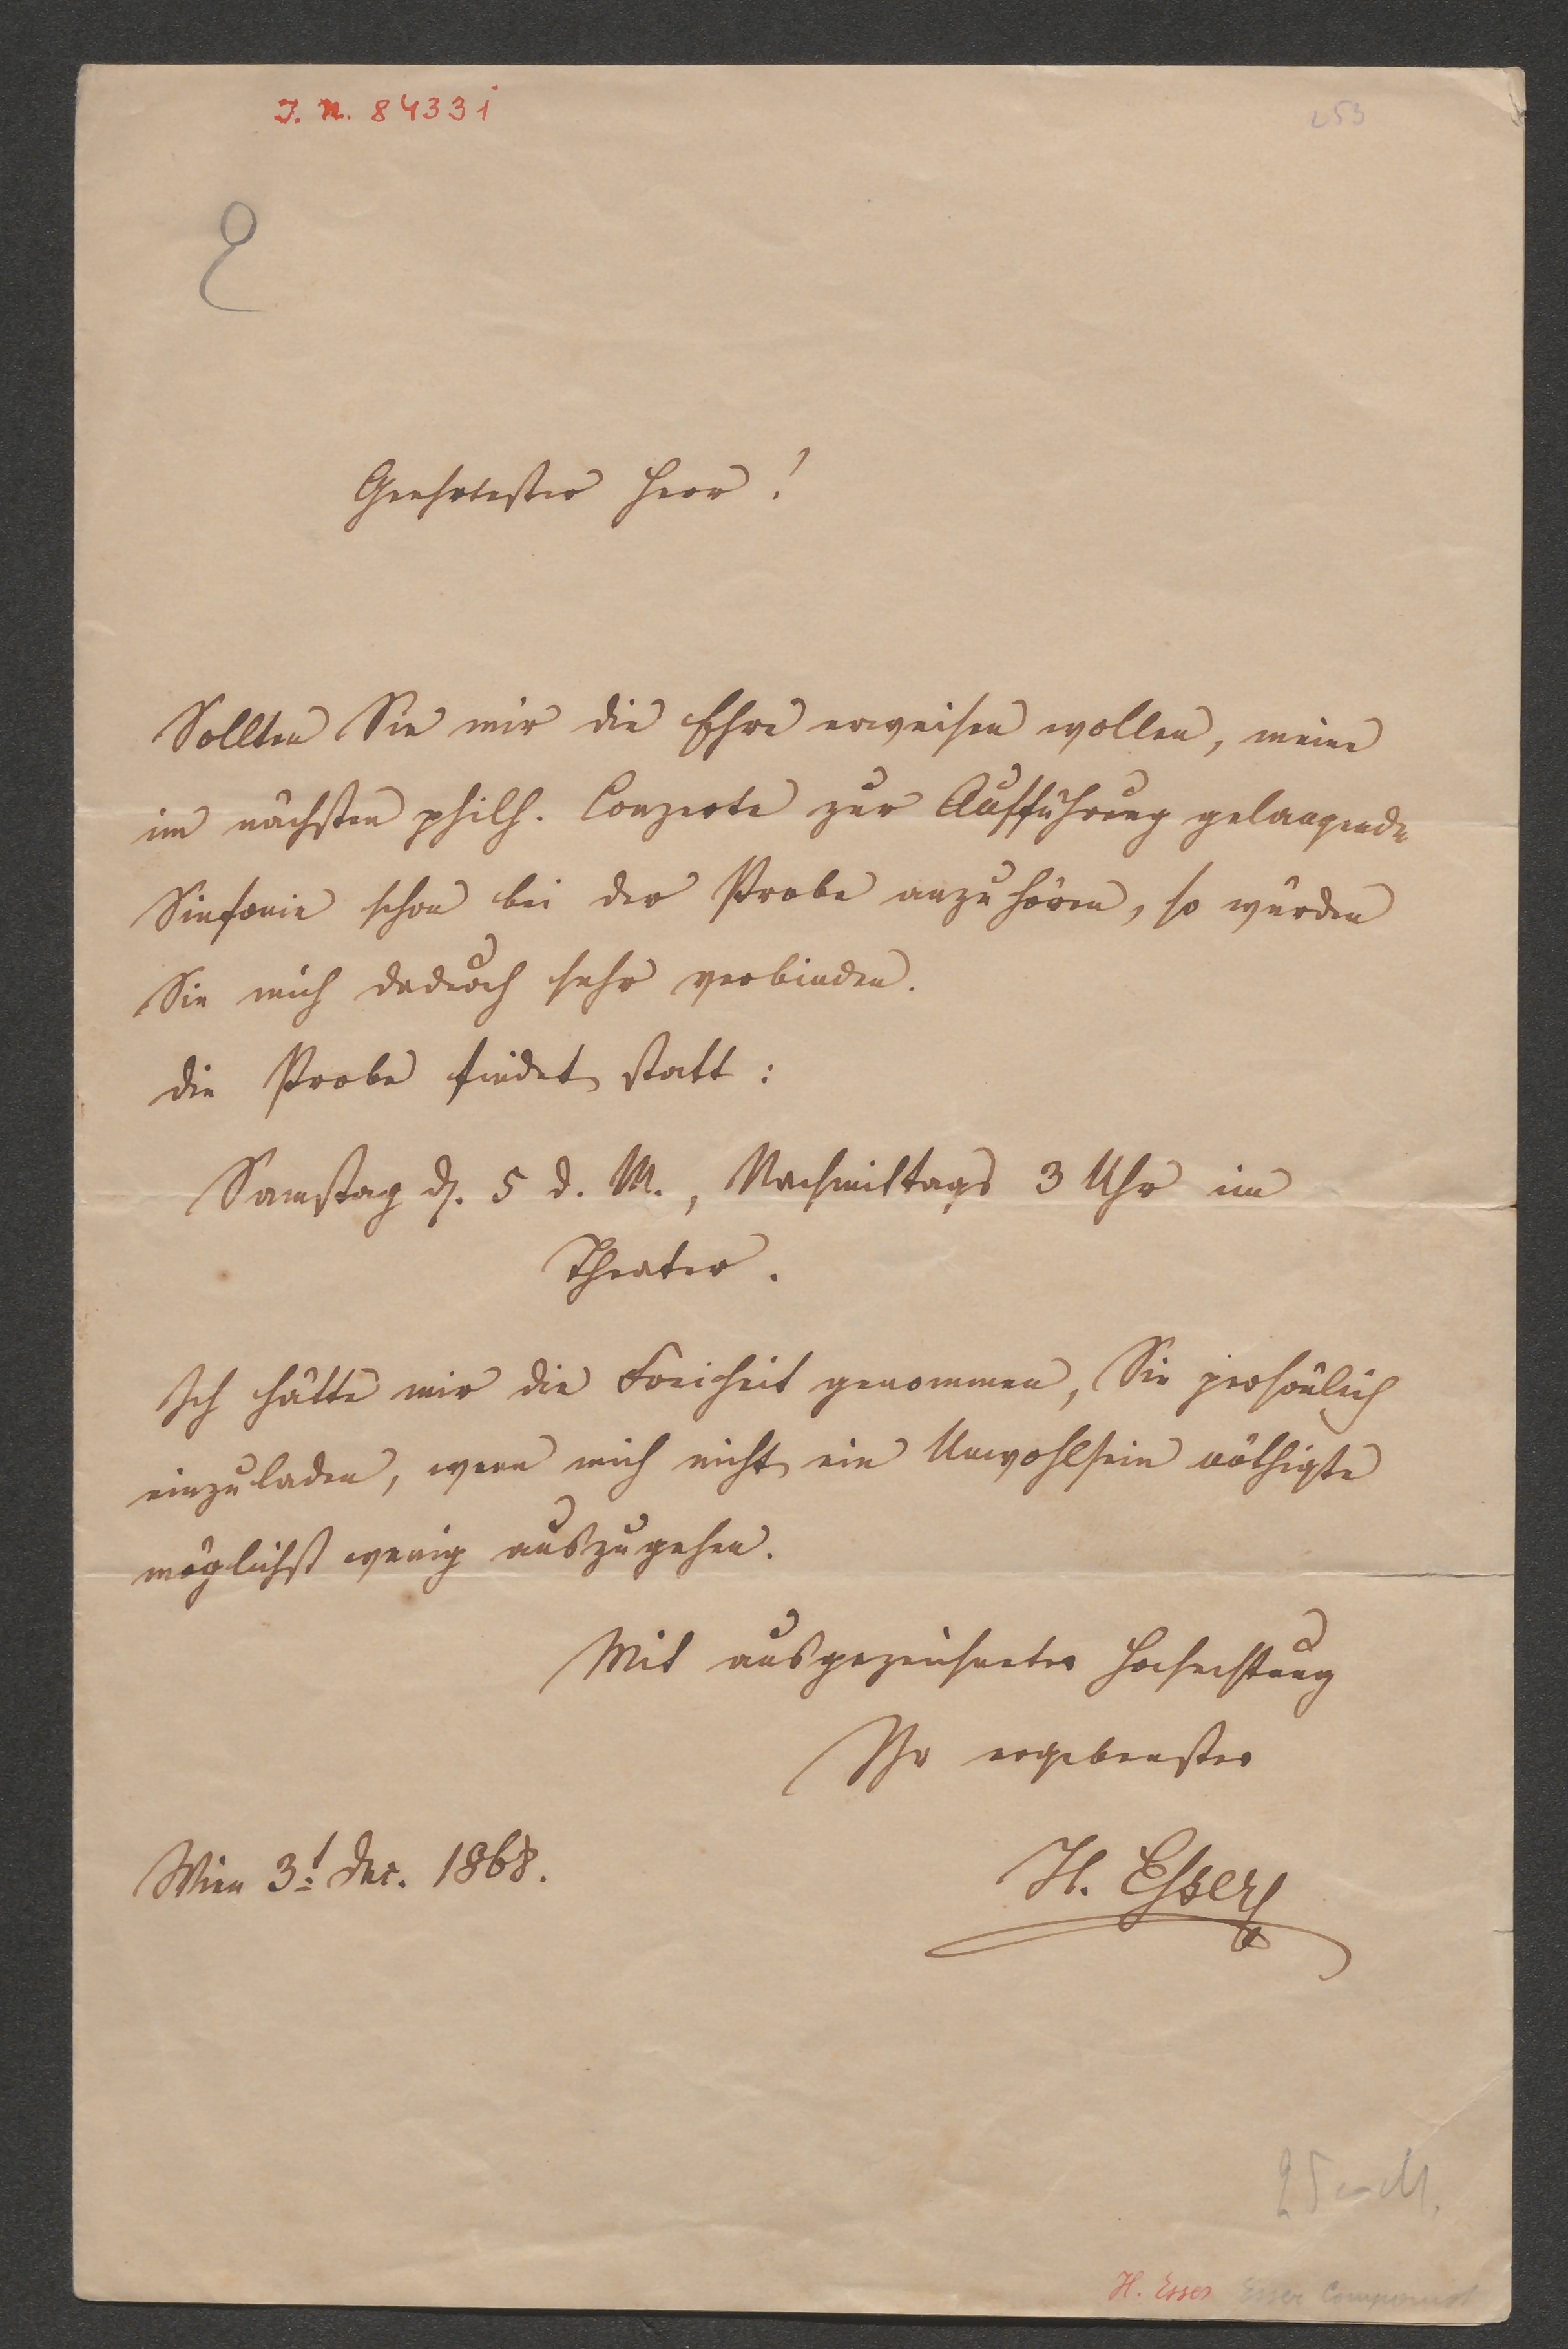 I. N. 84331
253
E
Geehrtester Herr!
Sollten Sie mir die Ehre erweisen wollen, meine
im nächsten philh. Conzerte zur Aufführung gelangende
Sinfonie schon bei der Probe anzuhören, so würden
Sie mich dadurch sehr verbinden.
die Probe findet statt:
Samstag d. 5 d. M., Nachmittags 3 Uhr im
Theater.
Ich hätte mir die Freiheit genommen, Sie persönlich
einzuladen, wenn mich nicht ein Unwohlsein nöthigte
möglichst wenig auszugehen.
Mit ausgezeichneter Hochachtung
Ihr ergebenster
Wien 3t Dec. 1868.
H. Esser
H. Esser Esser Componist